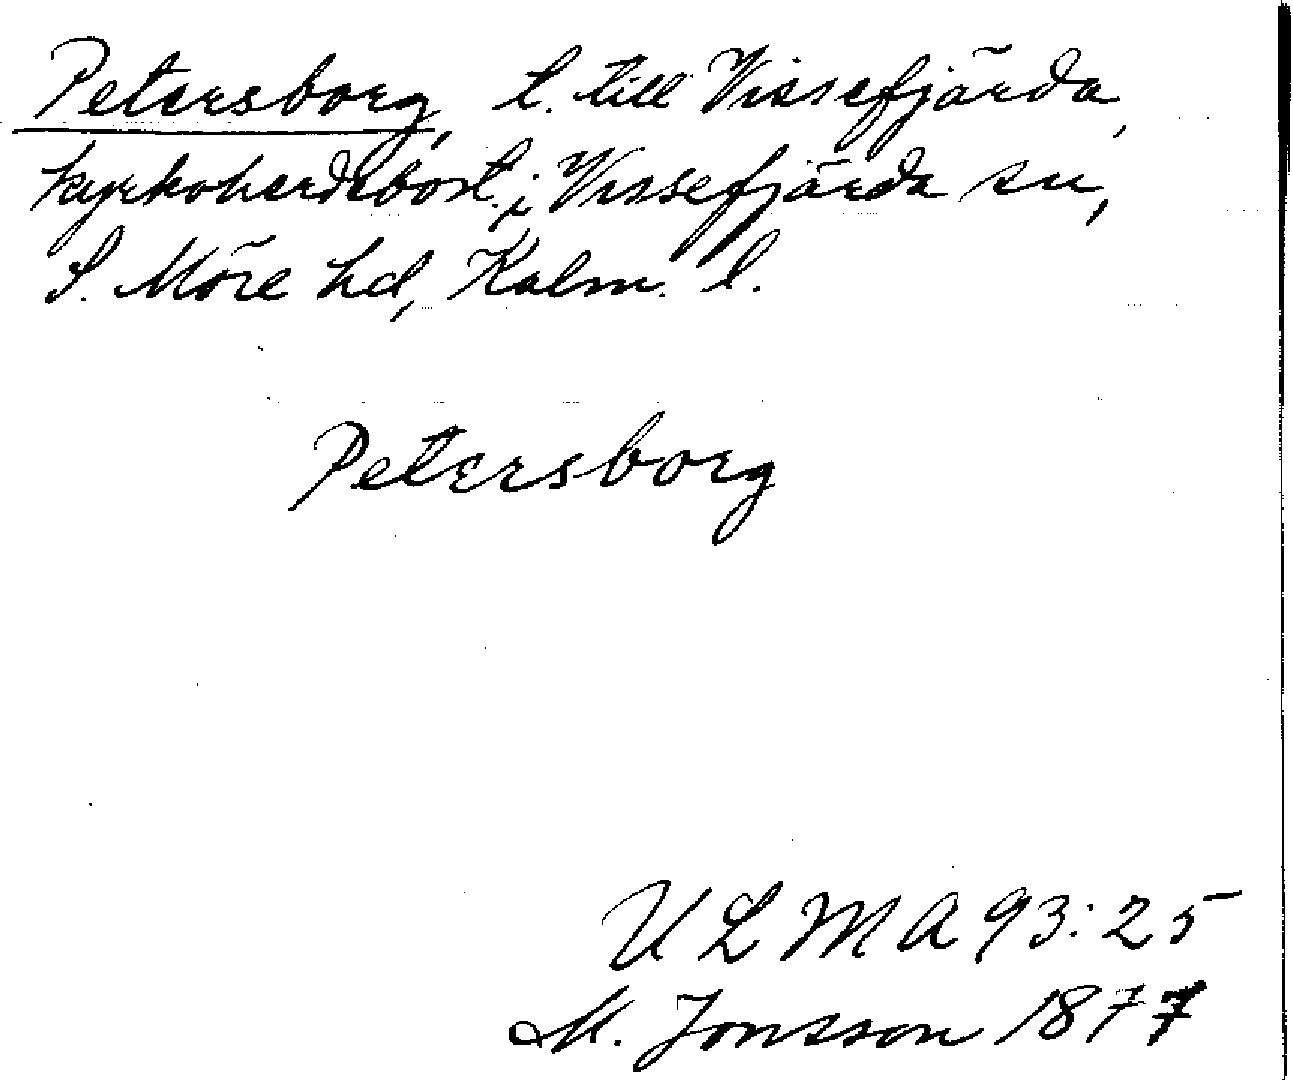 Petersborg, t. till Vissefjärda,
kyrkoherdebost. i Vissefjärda sn,
S. Möre hd, Kalm. l.
Petersborg
ULMA 93:25
M. Jonsson 1877